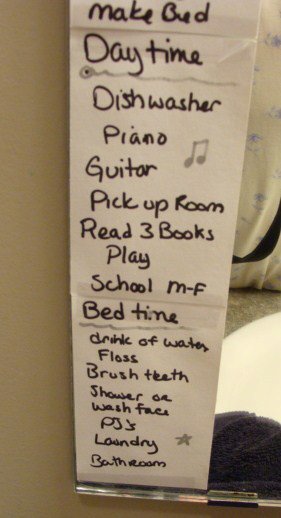 make Bed
Daytime
Dishwasher
Piano
Guitar
Pick up Room
Read 3 Books
Play
School M-F
Bed time
drink of water
Floss
Brush teeth
Shower or
wash face
PJ's
Laundry
Bathroom